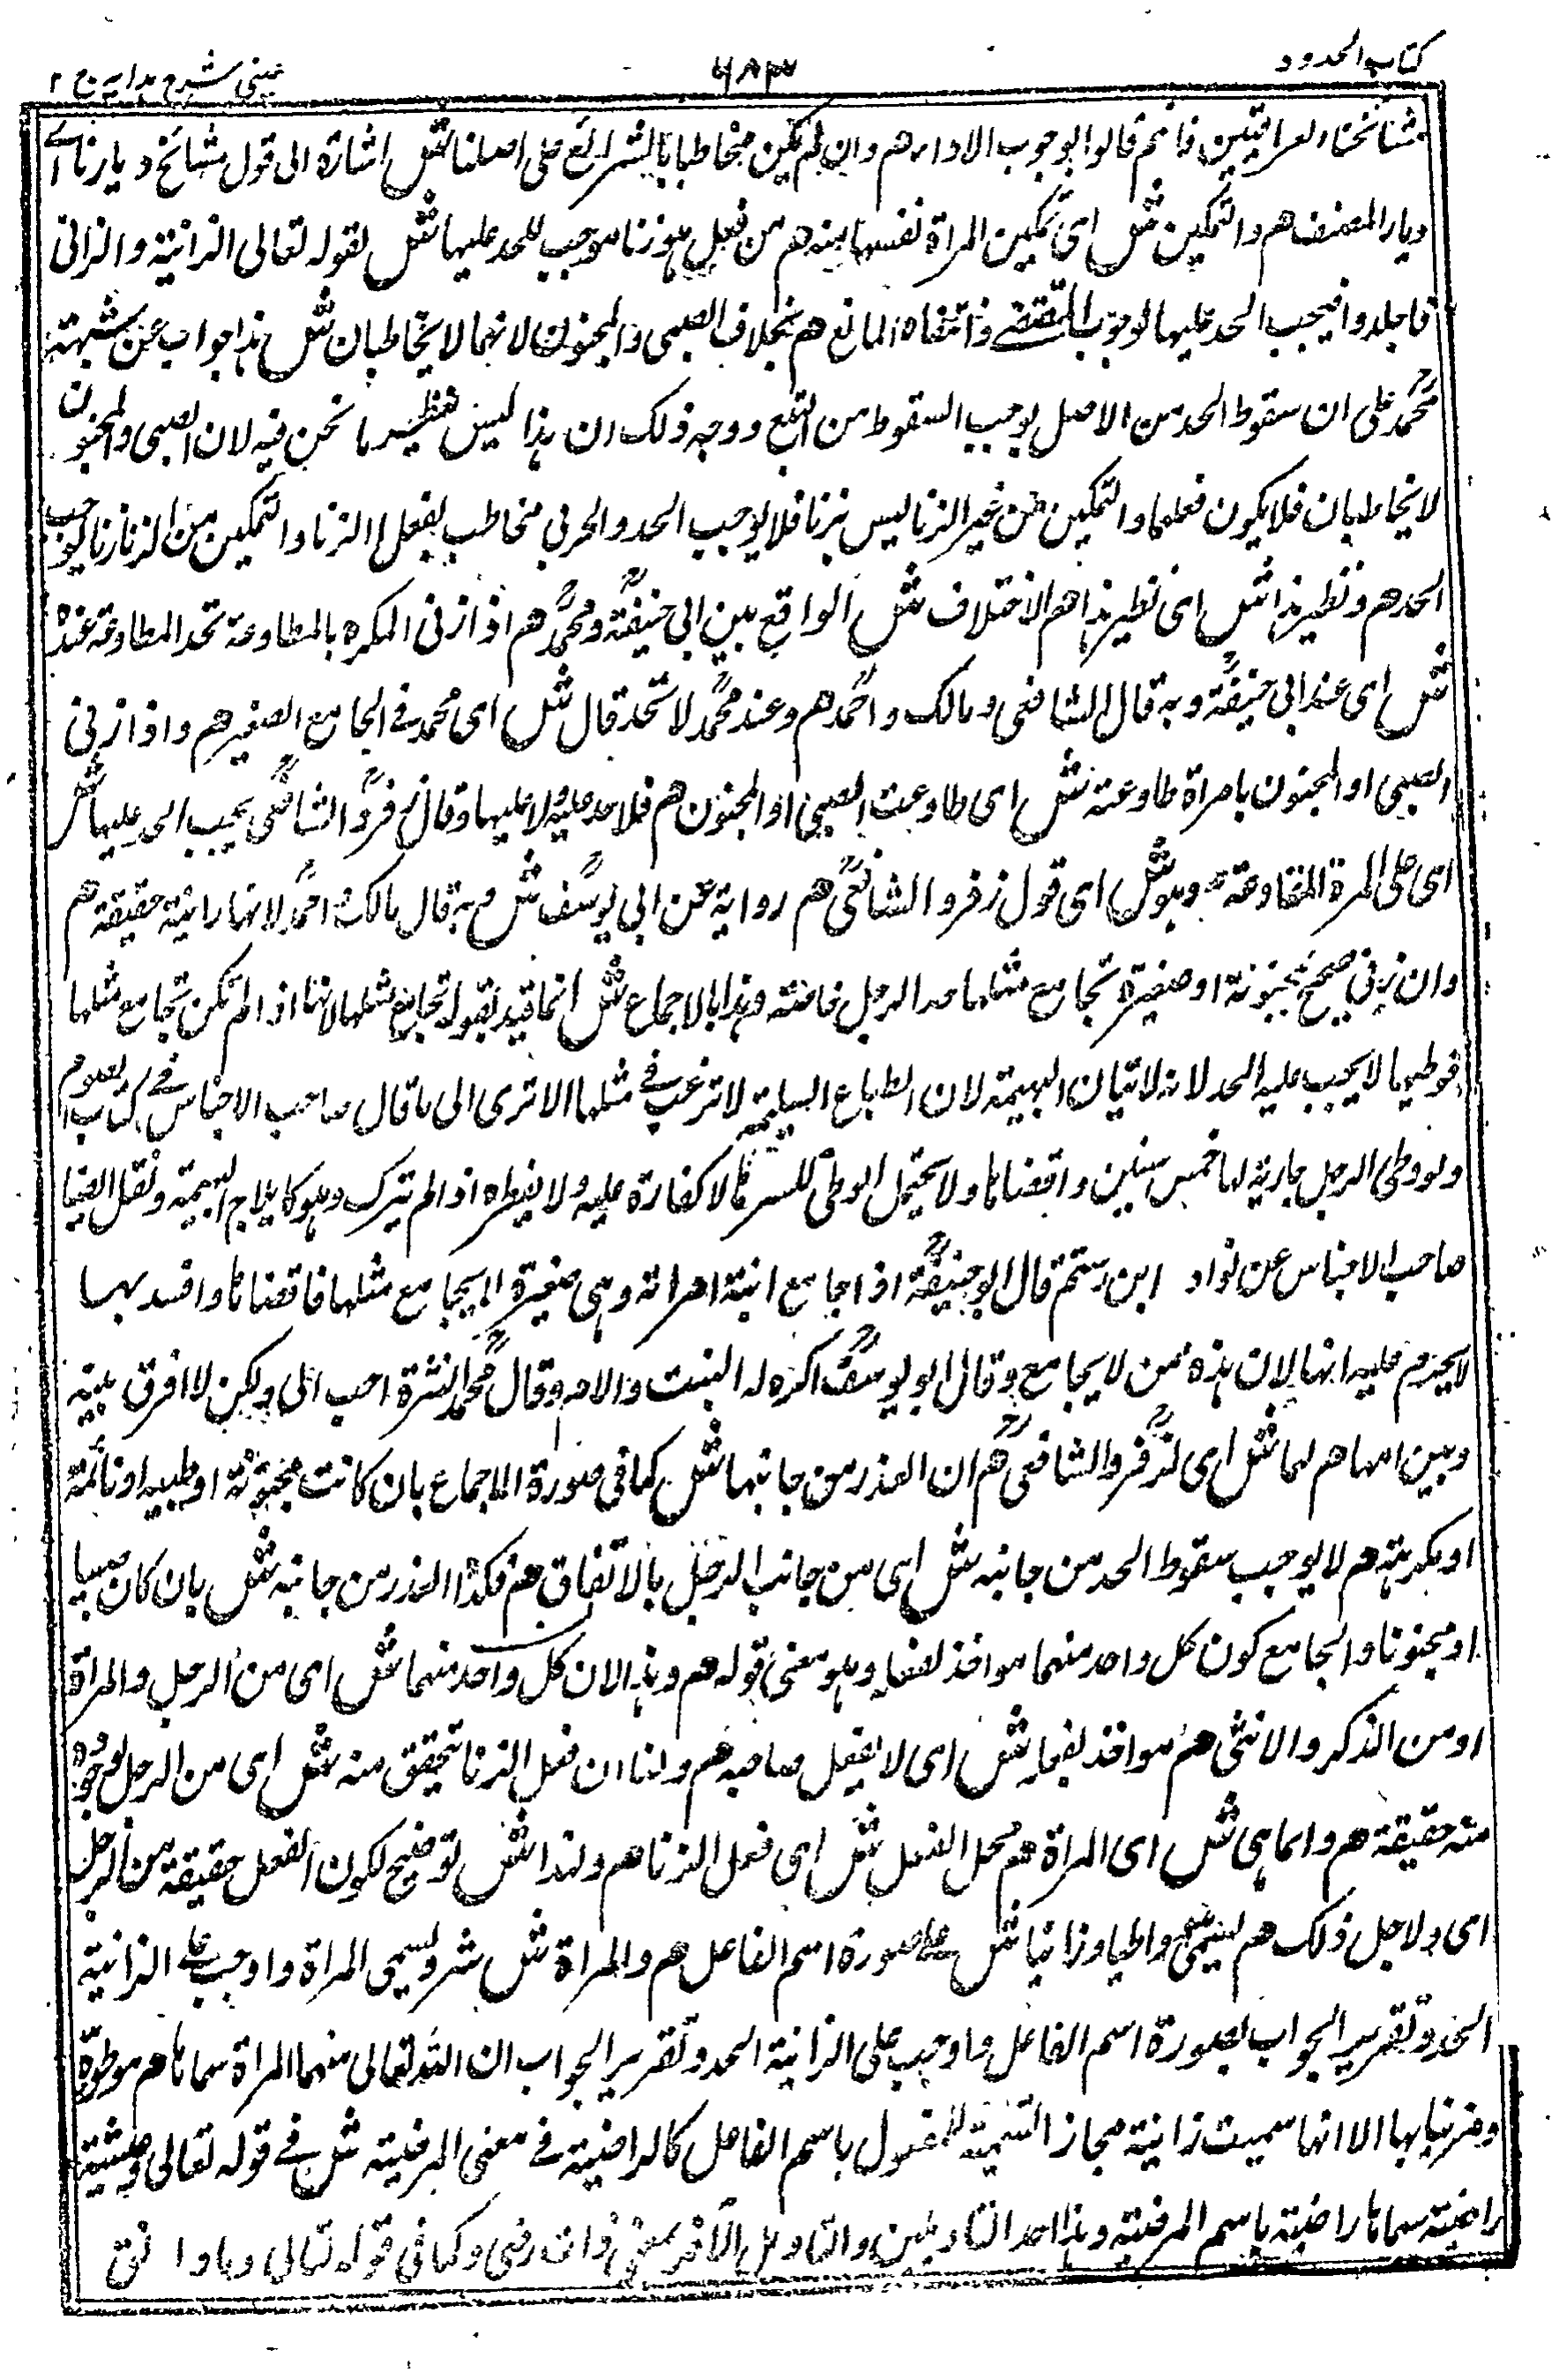 كتاب الحدود
٦٨٣
عينى شرح هدايه ج ٢
مشائخنا العراقيين فانهم قالوا بوجوب الاداء هم وان لم يكن مخاطبا بالشرائع على اصلنا ش اشارة الى قول مشائخ ديارنا اے
ديار المصنف هم والتمكين ش اى تمكين المراة نفسها منه هم من فعل هو زنا موجب للحد عليها ش لقوله تعالى الزانية والزانى
فاجلدوا فيجب الحد عليها لوجوب المقتضے وانتفاء المانع هم بخلاف الصبى والمجنون لانهما لا يخاطبان ش هذا جواب عن شبهة
محمد على ان سقوط الحد من الاصل يوجب السقوط من التبع ووجه ذلك ان هذا ليس نظير ما نحن فيه لان الصبى والمجنون
لا يخاطبان فلا يكون فعلهما والتمكين من غير الزنا ليس بزنا فلا يوجب الحد والحربى مخاطب بفعل الزنا والتمكين من الزنا زنا يوجب
الحد هم ونظير هذا ش اى نظير هذا هم الاختلاف ش الواقع بين ابى حنيفة ومحمد هم اذا زنى المكره بالمطاوعة تحد المطاوعة عنده
ش اى عند ابى حنيفة وبه قال الشافعى ومالك واحمد هم وعند محمد لا تحد قال ش اى محمد فے الجامع الصغير هم واذا زنى
الصبى او المجنون بامراة طاوعته ش اى طاوعت الصبى او المجنون هم فلا حد عليه ولا عليها وقال زفر والشافعى يجب الحد عليها ش
اى على المرة المطاوعة هم وهو ش اى قول زفر والشافعى هم رواية عن ابى يوسف ش وبه قال مالك واحمد لانها زانية حقيقة هم
وان زنى صحيح بمجنونة او صغيرة تجامع مثلها حد الرجل خاصة وهذا بالاجماع ش انما قيد بقوله تجامع مثلها لانها اذا لم تكن تجامع مثلها
فوطيها لا يجب عليه الحد لانه لاتيان البهيمة لان الطباع السليمة لا ترغب فے مثلها الا ترى الى ما قال صاحب الاجناس فے كتاب الصوم
ولو وطى الرجل جارية لها خمس سنين وافضاها ولا يحتمل الوطى للصغرها لا كفارة عليه ولا يفطره اذا لم ينزل وهو كايلاج البهيمة ونقل ايضا
صاحب الاجناس عن نوادر ابن رستم قال ابو حنيفة اذا جامع ابنة امراته وهى صغيرة لا يجامع مثلها فافضاها وافسدها
لا يحرم عليه امها لان هذه ممن لا يجامع وقال ابو يوسف اكره له البنت والام وقال محمد التنزه احب الى ولكن لا افرق بينه
وبين امها هم لهما ش اى لزفر والشافعى هم ان العذر من جانبها ش كما فى صورة الاجماع بان كانت مجنونة او صبية او نائمة
او مكرهة هم لا يوجب سقوط الحد من جانبه ش اى من جانب الرجل بالاتفاق هم فكذا العذر من جانبه ش بان كان صبيا
او مجنونا والجامع كون كل واحد منهما مواخذ بفعله وهو معنى قوله هم وهذا لان كل واحد منهما ش اى من الرجل والمراة
او من الذكر والانثى هم مواخذ بفعله ش اى لا بفعل صاحبه هم ولنا ان فعل الزنا يتحقق منه ش اى من الرجل لوجوده
منه حقيقة هم وانما هى ش اى المراة هم محل الفعل ش اى فعل الزنا هم ولهذا ش توضيح لكون الفعل حقيقة من الرجل
اى ولاجل ذلك هم يسمى هو واطيا وزانيا ش على صورة اسم الفاعل هم والمراة ش ويسمى المراة واوجب على الزانية
الحد وتقرير الجواب بصورة اسم الفاعل واوجب على الزانية الحد وتقرير الجواب ان الله تعالى منهما المراة سماها هم موطوة
ومزنيا بها الا انها سميت زانية مجازا تسمية للمفعول باسم الفاعل كالراضية فے معنى المرضية ش فے قوله تعالى عيشة
راضية سماها راضية باسم المرضية وهذا احد التاويلين والتاويل الآخر بمعنى ذات رضى وكما فى قوله تعالى وماء دافق